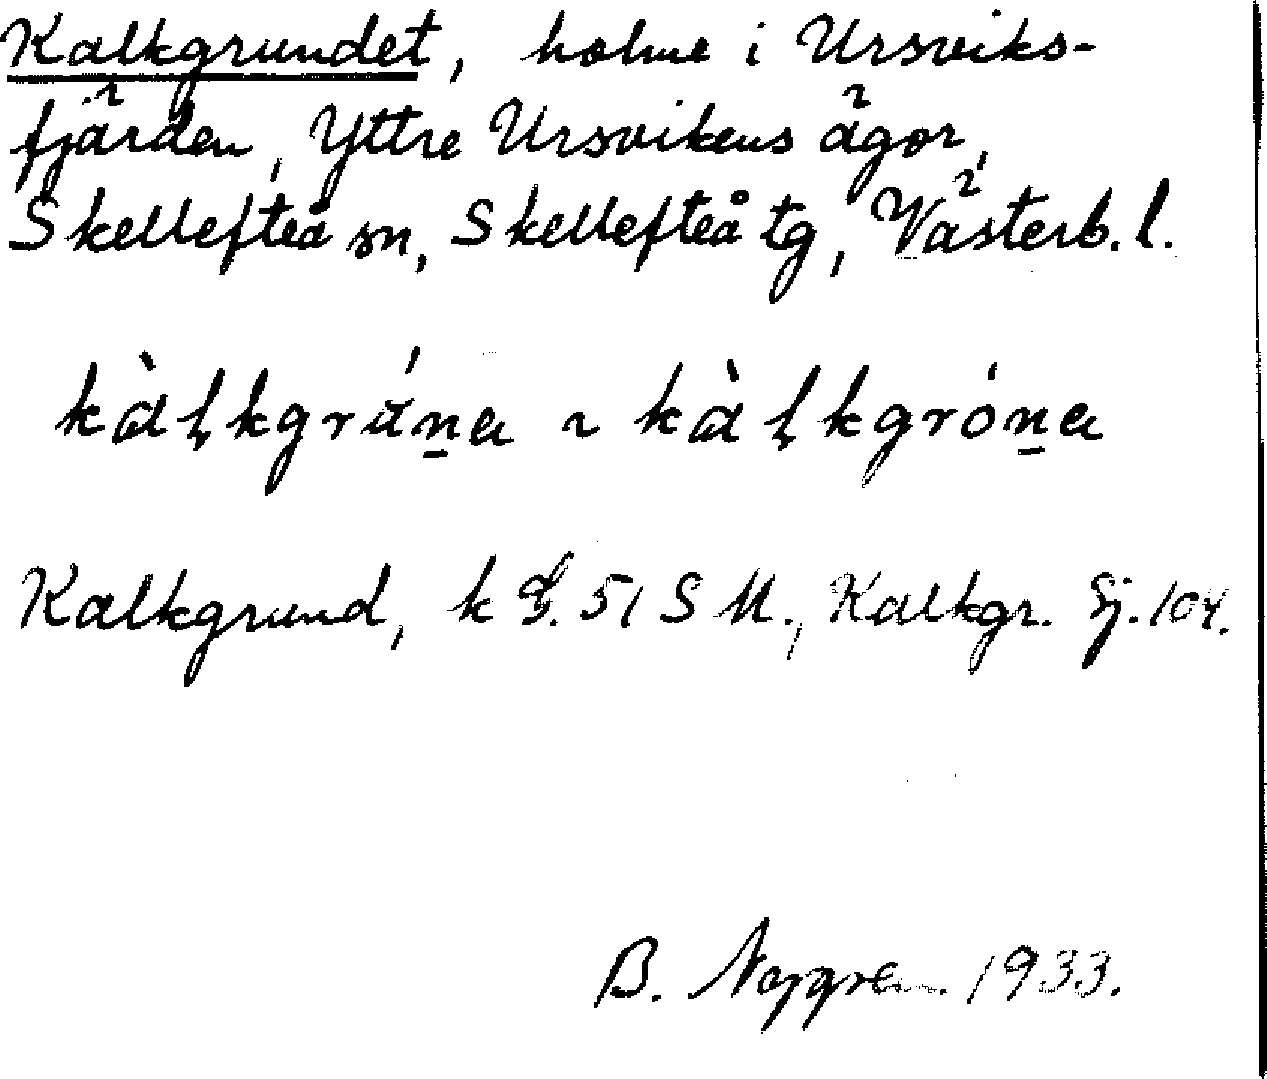 Kalkgrundet, holme i Ursviks-
fjärden, Yttre Ursvikens ägor,
Skellefteå sn, Skellefteå tg, Västerb. l.
kàļkgrún̲a ~ kàļkgrón̲a
Kalkgrund, k G. 51 S M., Kalkgr. Sj. 104.
B. Nygren 1933.